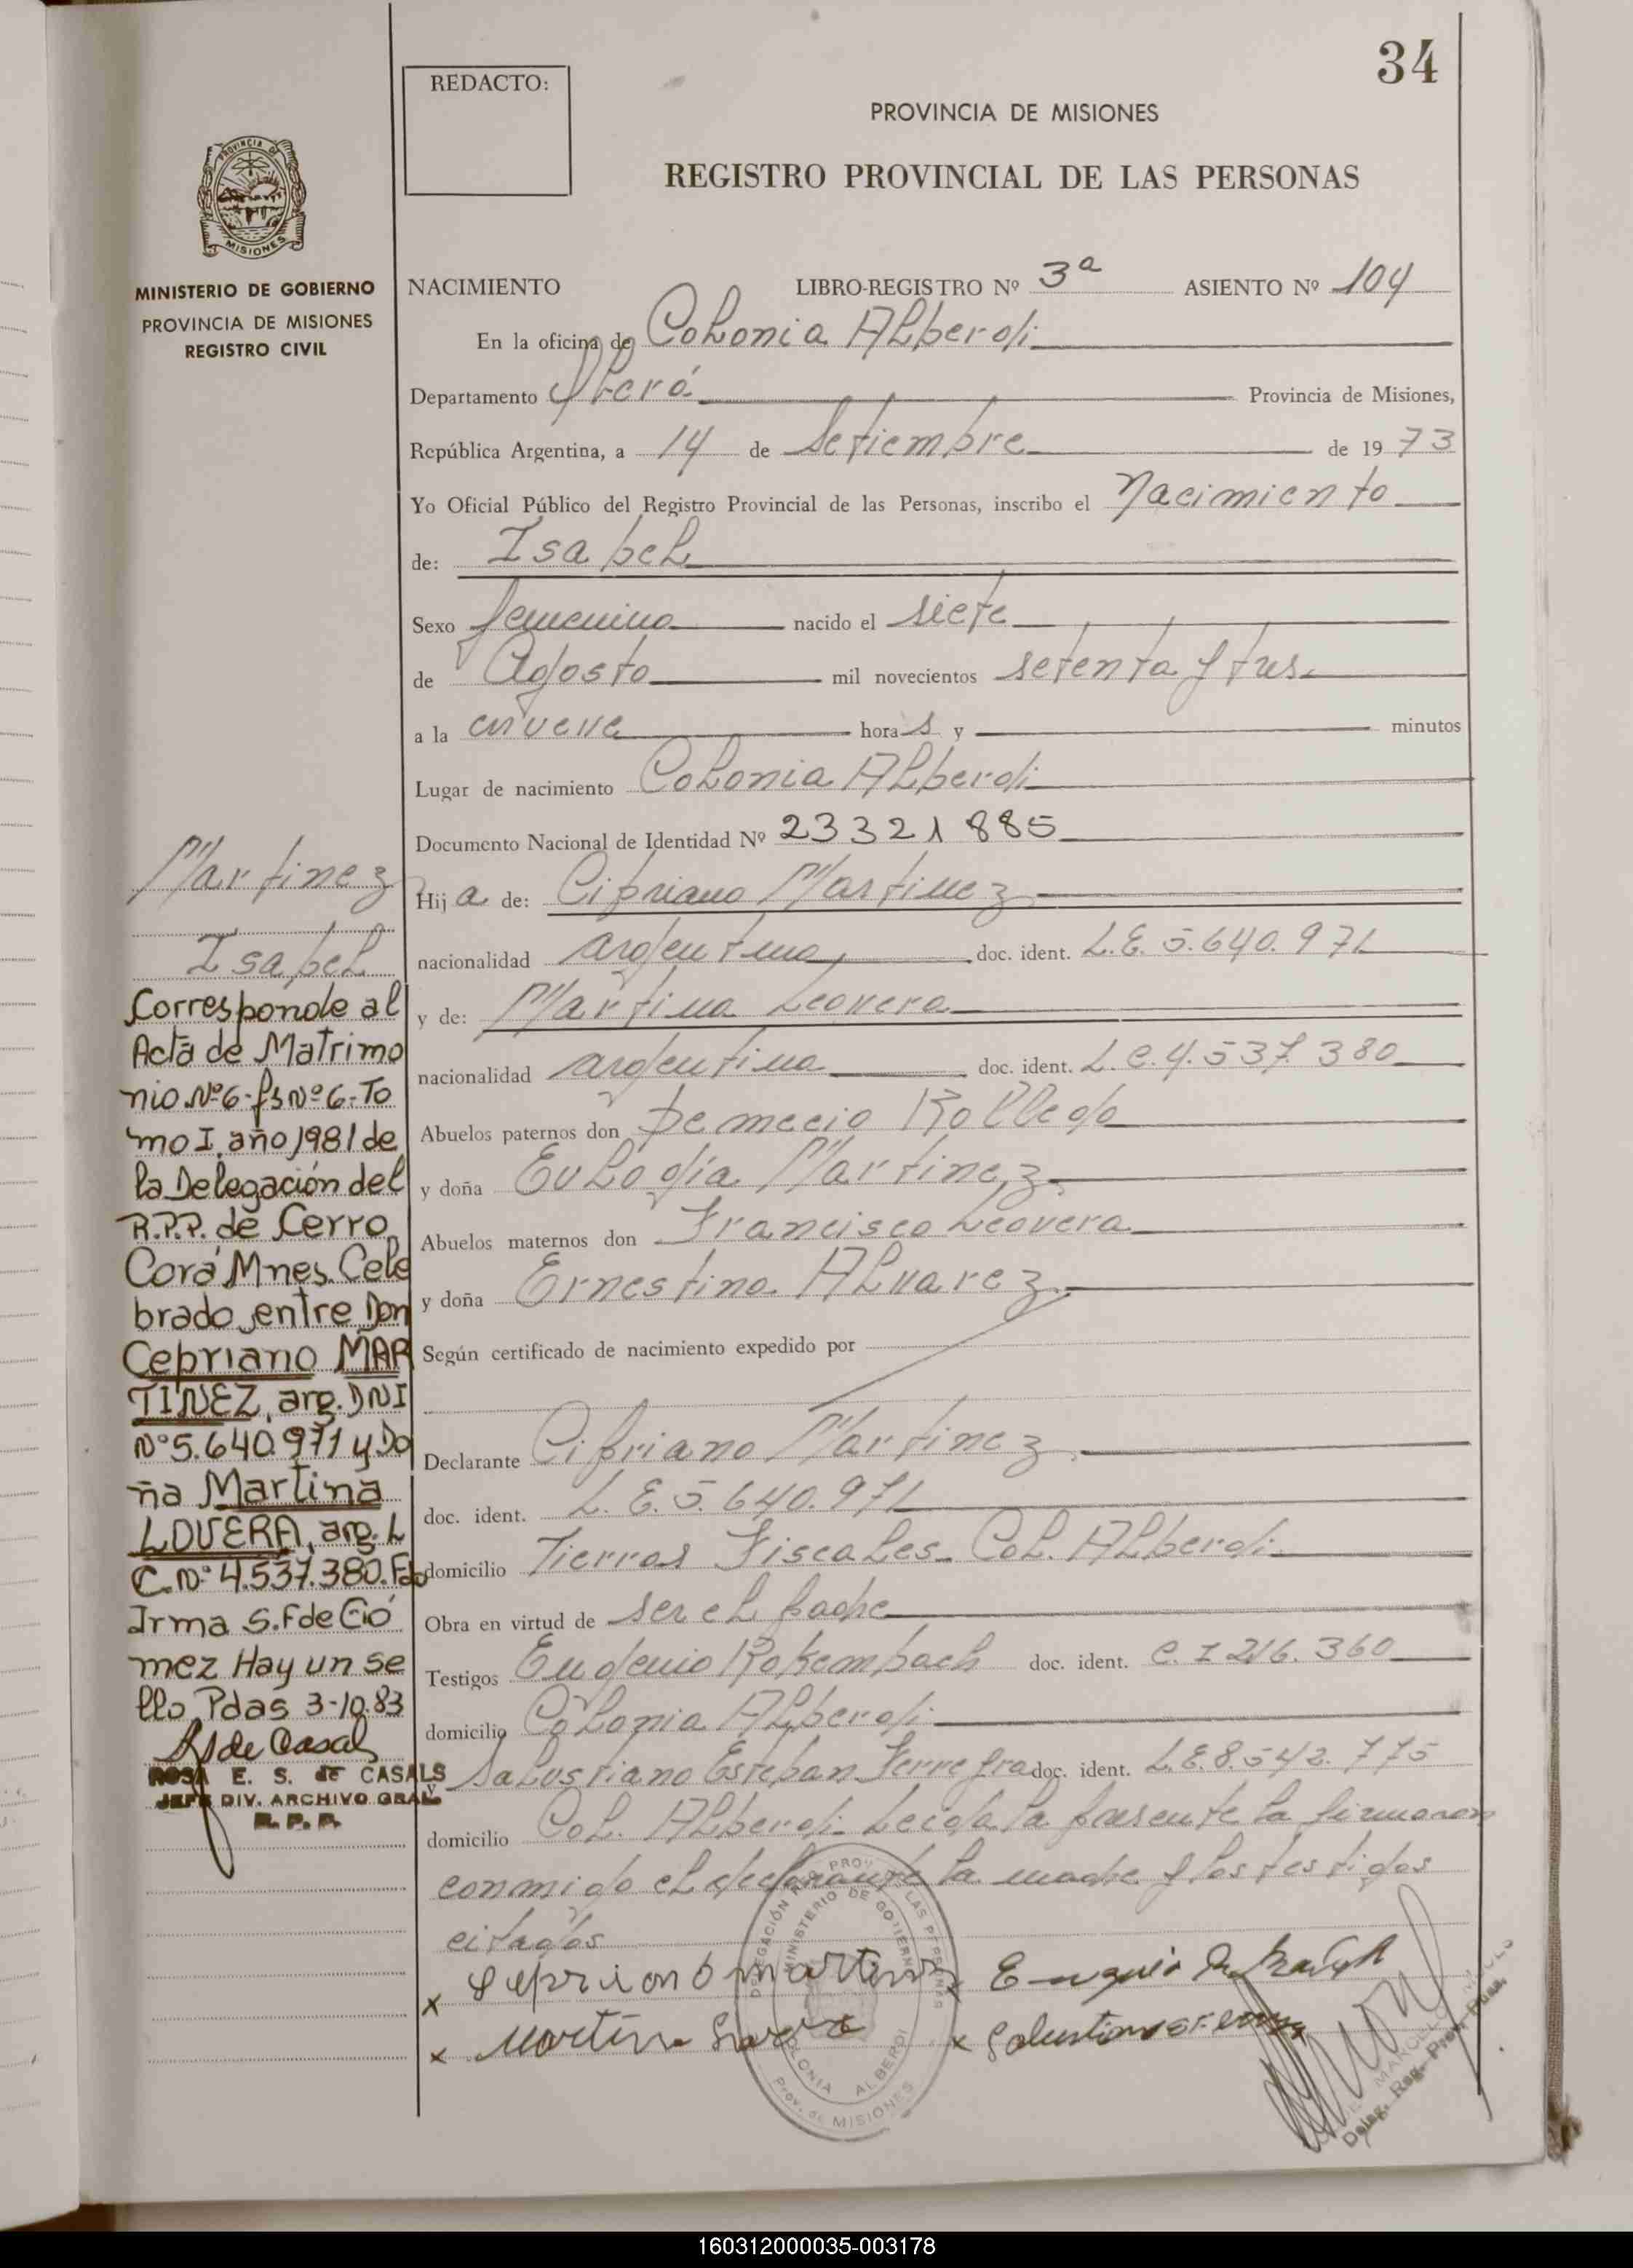 34
REDACTO:
PROVINCIA DE MISIONES
REGISTRO PROVINCIAL DE LAS PERSONAS
PROVINCIA DE
MISIONES
MINISTERIO DE GOBIERNO
PROVINCIA DE MISIONES
REGISTRO CIVIL
NACIMIENTO LIBRO-REGISTRO Nº 3ª ASIENTO Nº 104
En la oficina de Colonia Alberdi
Departamento Oberá Provincia de Misiones,
República Argentina, a 14 de Setiembre de 1973
Yo Oficial Público del Registro Provincial de las Personas, inscribo el Nacimiento
de: Isabel
Sexo femenino nacido el siete
de Agosto mil novecientos setenta y tres
a la nueve hora s y minutos
Lugar de nacimiento Colonia Alberdi
Documento Nacional de Identidad Nº 23321885
Hij a de: Cipriano Martinez
nacionalidad argentina doc. ident. L.E. 5.640.971
y de: Martina Leovera
nacionalidad argentina doc. ident. L.C. 4.537.380
Abuelos paternos don
y doña Eulogia Martinez
Abuelos maternos don Francisco Leovera
y doña Ernestina Alvarez
Según certificado de nacimiento expedido por
Declarante Cipriano Martinez
doc. ident. L.E. 5.640.971
domicilio Tierras Fiscales Col. Alberdi
Obra en virtud de ser el padre
Testigos Eugenio Rokembach doc. ident. C.I 216.360
domicilio Colonia Alberdi
y Salustiano Esteban doc. ident. L.E. 8.542.775
domicilio Col. Alberdi Leida la presente la firmaron
conmigo el declarante la madre y los testigos
citados
x
x Martina
x
x
COLONIA ALBERDI
Prov. de MISIONES
Martinez
Isabel
Corresponde al
Acta de Matrimo
nio Nº6-fsNº6-To
mo I, año 1981 de
la Delegación del
R.P.P. de Cerro
Corá Mnes. Cele
brado entre Don
Cepriano MAR
TINEZ, arg. DNI
Nº5.640.971 y Do
ña Martina
LOVERA, arg. L
C.Nº 4.537.380. Fdo
Irma S.F de Gó
mez Hay un se
llo Pdas 3-10.83
RSde Casals
ROSA E. S. de CASALS
JEFE DIV. ARCHIVO GRAL
R. P. P.
160312000035-003178